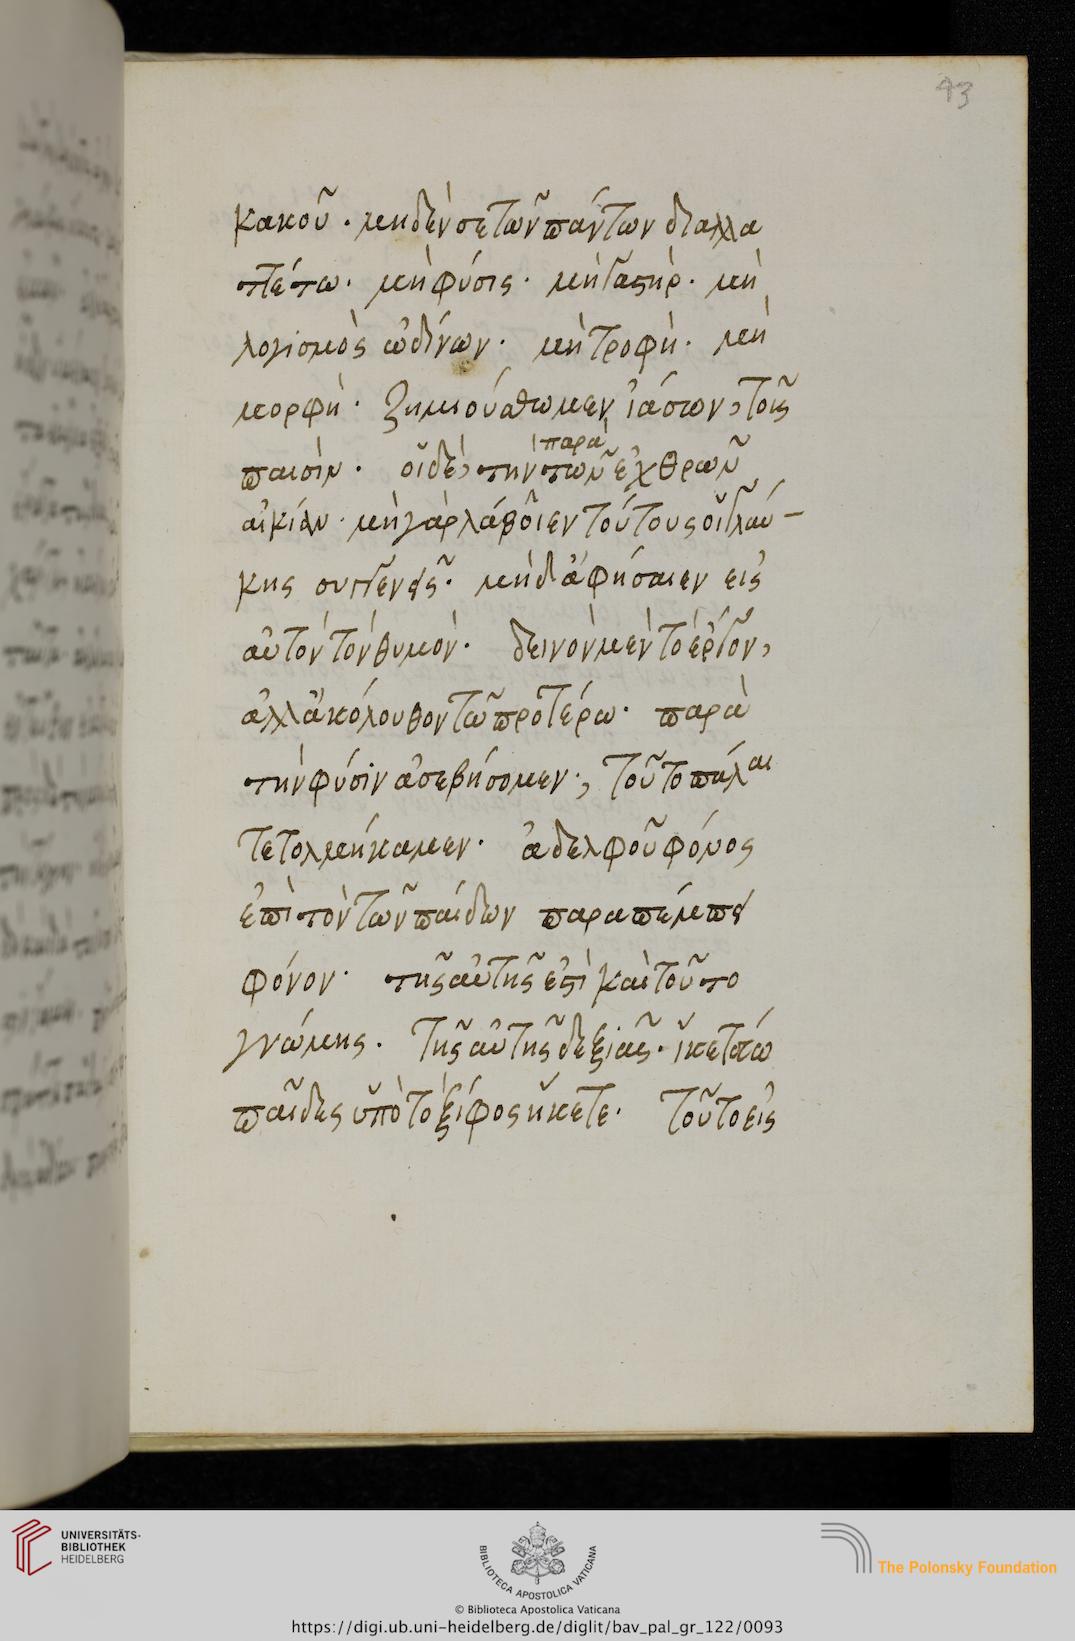 43
κακοῦ. μηδέν σε τῶν πάντων διαλλα
τέτω. μὴ φύσις. μὴ γαστήρ. μὴ
λογισμὸς ὠδίνων. μὴ τροφή. μὴ
μορφή. ζημιούσθω μεν ἰάσων, τοῖς
παισίν. οἱ δὲ, τὴν παρὰ τῶν ἐχθρῶν
αἰκίαν. μὴ γὰρ λάβοιεν τούτους οἱ γλαύ-
κης συγγενεῖς. μὴ δ ἀφήσαιεν εἰς
αὐτὸν τὸν θυμόν. δεινὸν μὲν τὸ ἔργον,
ἀλλ ἀκόλουθον τῶ προτέρω. παρὰ
τὴν φύσιν ἀσεβήσομεν., τοῦτο πάλαι
τετολμήκαμεν. ἀδελφοῦ φόνος
ἐπὶ τὸν τῶν παίδων παραπέμπει
φόνον. τῆς αὐτῆς ἐστὶ καὶ τοῦτο
γνώμης. τῆς αὐτῆς δεξιᾶς. ἡκέτω
παῖδες ὑπὸ τὸ ξίφος ἥκετε. τοῦτο εἰς
UNIVERSITÄTS-
BIBLIOTHEK
HEIDELBERG
BIBLIOTECA APOSTOLICA VATICANA
The Polonsky Foundation
© Biblioteca Apostolica Vaticana
https://digi.ub.uni-heidelberg.de/diglit/bav_pal_gr_122/0093